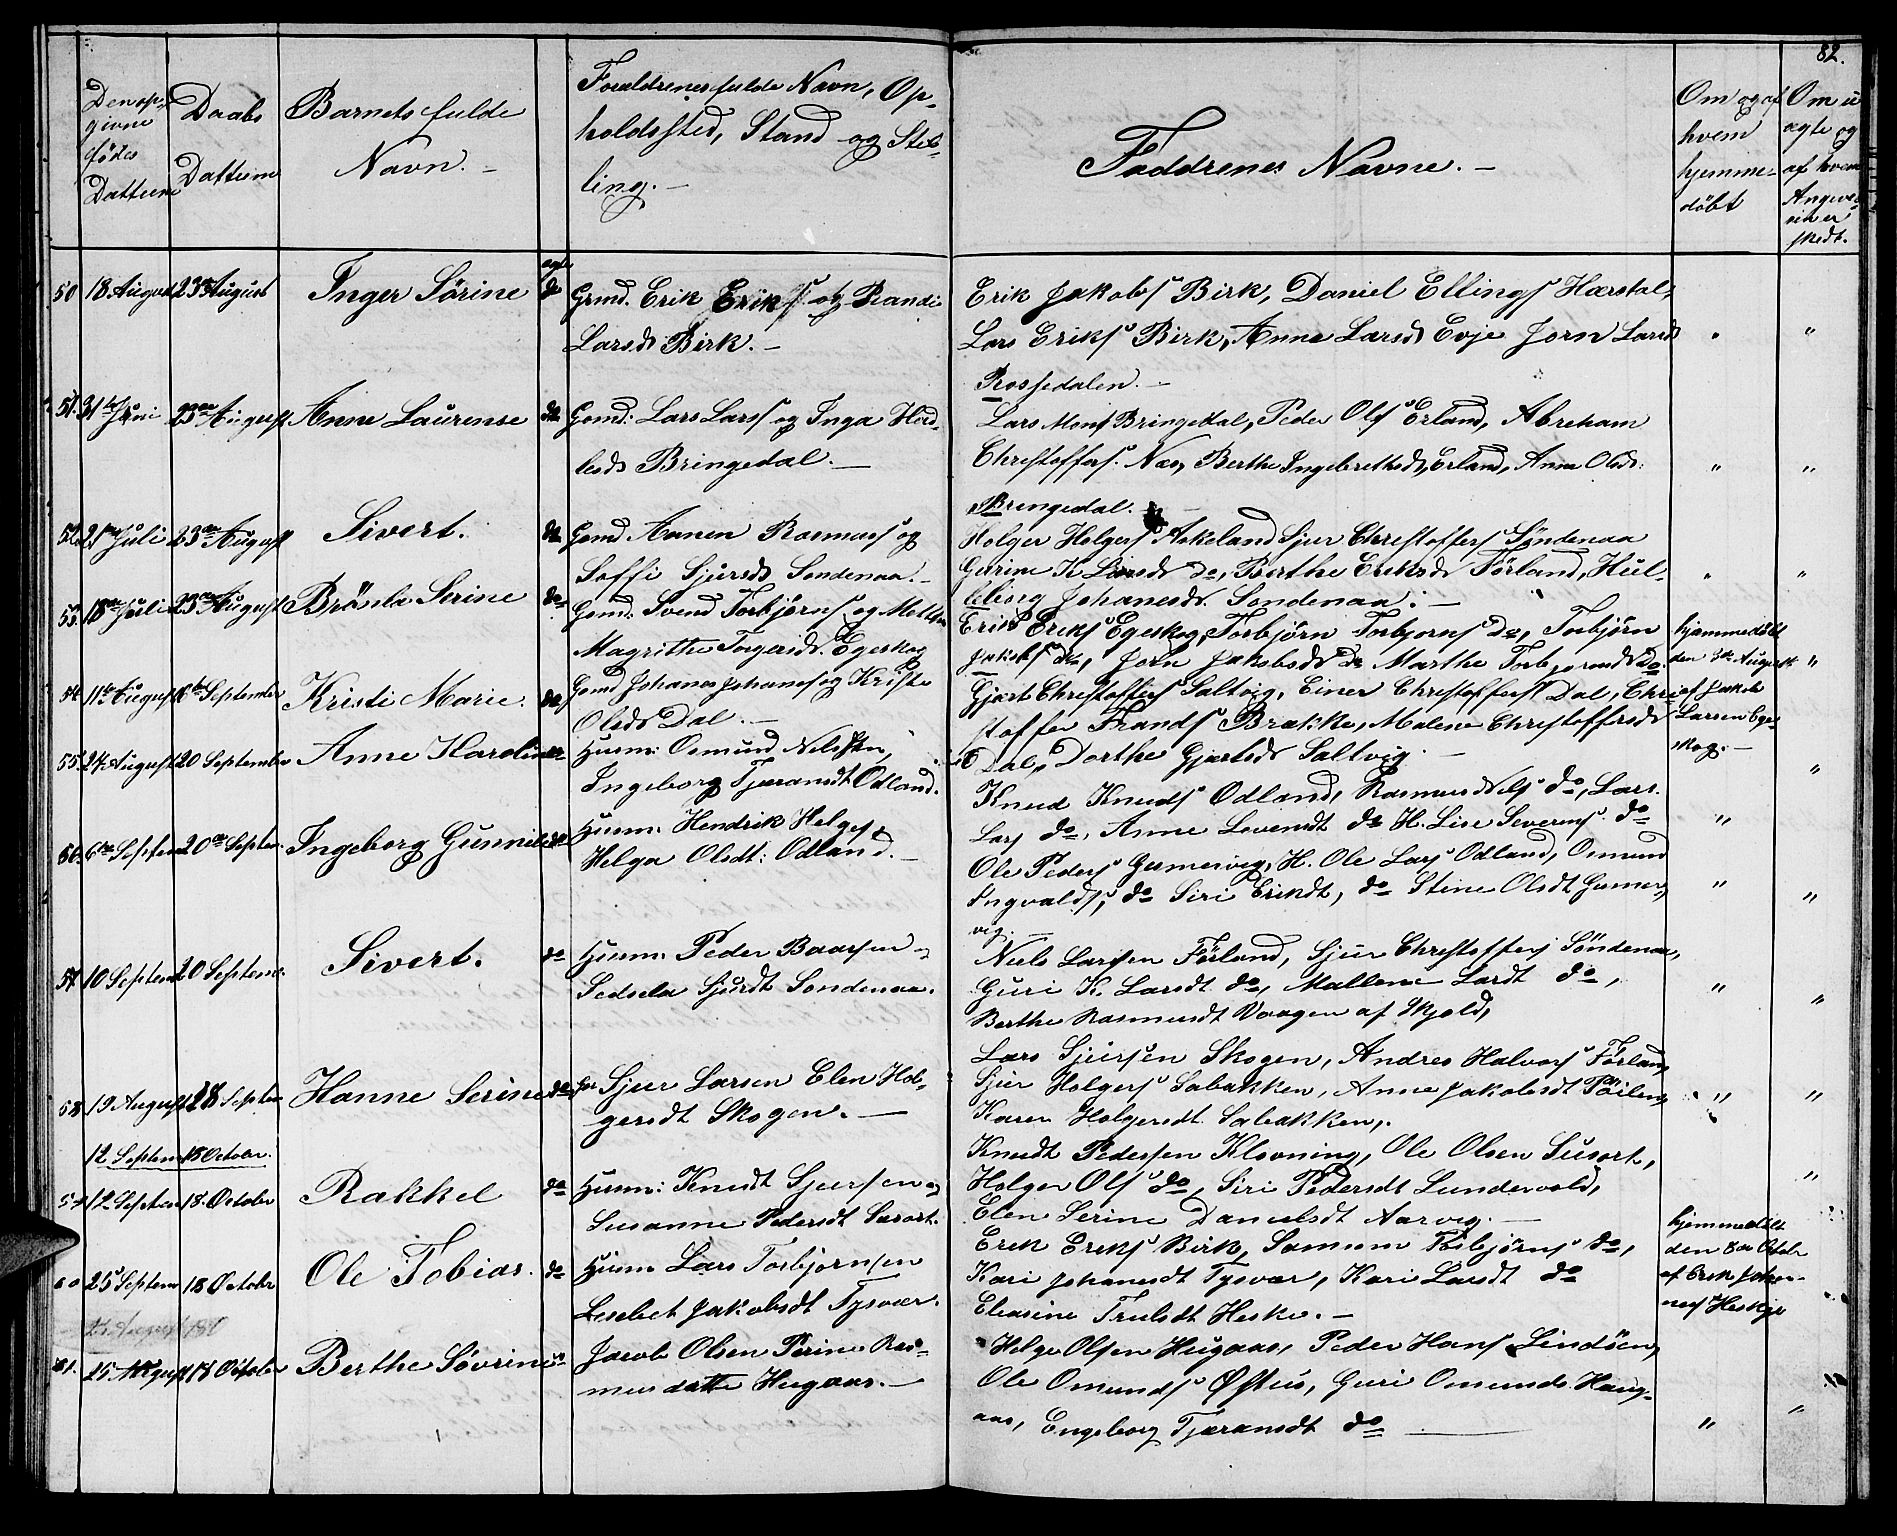 82.
Den op-
givne
födes
Dattum
Daabs
Dattum
Barnets fulde
Navn. -
Forældrenes fulde Navn, Op-
holdssted, Stand og Stel-
ling. -
Faddrenes Navne. -
Om og af
hvem
hjemme-
döbt
Om u
ægte og
af hvem
Angivel-
sen er
skedt.
50 18 August 23 August Inger Sörine ægte do Grmd. Erik Eriks og Randi
Larsd. Birk. -
Erik Jakobs Birk, Daniel Ellings Hærstal,
Lars Eriks Birk, Anne Larsd. Evje Jorn Larsd " "
Rossedalen. -
51. 31te Juni 23de August Anne Laurense do Gmd. Lars Lars og Inga
Bringedal. -
Lars Mons Bringedal, Peder Ols Erland, Abreham
Christoffers. Næs, Berthe Ingebrethsd. Erland, Anne Olsd. " "
Bringedal. -
52. 21 Juli 23de August Sivert. do Gmd. Rasmus og
Soffi Sjursd. Söndenaa. -
Holger Holgers Askeland Sjur Christoffers Söndenaa
Gurine K Larsd. do, Berthe Eriksd. Förland, Hul- " "
leborg Johanesdr. Söndenaa. -
53. 18de Juli 23de August Brönla Serine do Gmd. Svend Torbjörns og
Magrithe Torgersd. Egeskog
Erik Eriks Egeskog, Torbjörn Torbjorns do, Torbjörn
Jakobs do, Jorn Jakobsd. do Marthe Torbjornsd. do.
hjemmedöbt
den August "
af Jakob
Larsen Ege-
skog. -
54. 11te August 6te September Kristi Marie. do Gmd Johanes Johanes og Kristi
Olsd. Dal. -
Gjert Christoffers Saltvig, Einer Christoffers Dal, Chri-
stoffer Frands Brække, Malene Christoffersd.
Dal, Dorthe Gjertsd. Saltvig. - "
55. 24 August 20 September Anne Karoline Husm: Osmund Nelssen,
Ingeborg Tjerandt Odland.
Knud Knuds Odland, Rasmus Nels do, Lars
Lars do, Anne Levensdt do H. Lise Severins do "
56. 6te Septem 20de Septem. Ingeborg Gunnild do Husm. Hendrik Helges,
Helga Olsdt: Odland. -
Ole Peders Gesmervig, H. Ole Lars Odland, Osmund
Ingvalds, do Siri Erikdt, do Stine Olsdt Gesmer- " "
vig. -
57. 10 Septem 20 Septem. Sivert. do Husm. Peder Baarsen
Sedsela Sjurdt Söndenaa.
Nels Larsen Förland, Sjur Christoffers Söndenaa,
Guri K. Larsdt do, Mallene Lardt do, " "
Berthe Rasmusdt Vaagen af Skjold,
58 19 August 28 Septem Hanne Serine do Sjur Larsen Elen Hol-
gersdt Skogen. -
Lars Sjursen Skogen, Andres Halvors Förland,
Sjur Holgers Sabakken, Anne Jakobsdt " "
Karen Holgersdt Sabakken,
12 Septem 18 Octobr.
59 12 Septem 18. Octobr Rakkel do Husm: Knudt Sjursen
Susanne Pedersdt Susort.
Knudt Pedersen Klovning, Ole Olsen Susort,
Holger Ols do, Siri Pedersdt Lundevold, "
Elen Serine Danielsdt Aarvig. -
60 25 Septem 18 Octobr Ole Tobias. do Husm Lars Torbjornsen
Lisebet Jakobsdt Tysvær.
Erik Eriks Birk, Samson Torbjörns do,
Kari Johanesdt Tysvær, Kari Larsdt do
Eliasine Trulsdt Heske. -
hjemmedöbt
den 8de Octobr
af Erik Johan-
nes Heskje
61. 25 August 18 Octobr Berthe Sövrine Jacob Olsen Perine Ras-
musdatte Hugaas. -
Helge Olsen Hugaas, Peder Hans Lindöen,
Ole Omunds Östus, Guri Omunds. Haug-
aas, Engeborg Tjeransdt do - " "